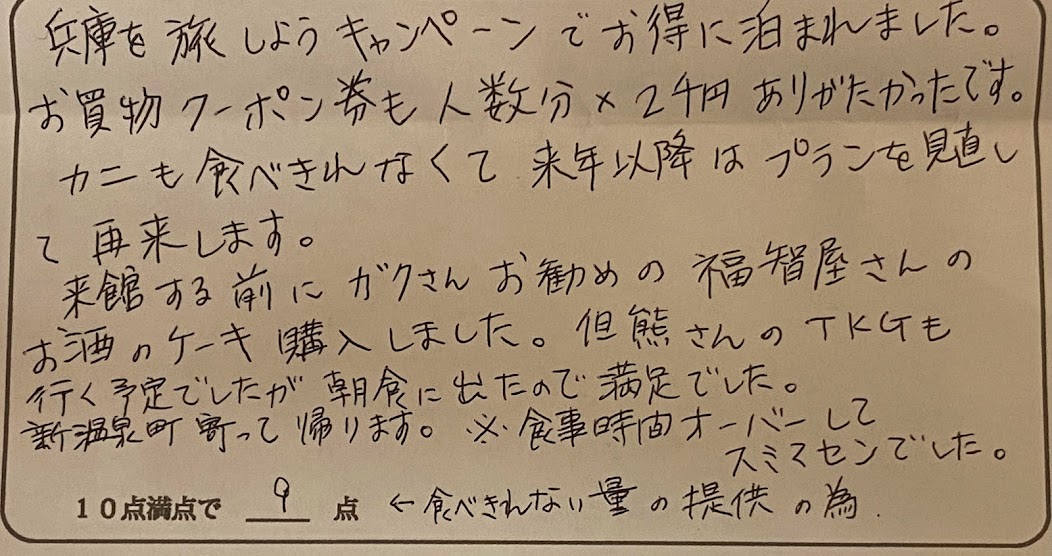 兵庫を旅しようキャンペーンでお得に泊まれました。
お買物クーポン券も人数分×2千円ありがたかったです。
カニも食べきれなくて来年以降はプランを見直し
て再来します。
来館する前にガクさんお勧めの福智屋さんの
お酒のケーキ購入しました。但熊さんのTKGも
行く予定でしたが朝食に出たので満足でした。
新温泉町寄って帰ります。※食事時間オーバーして
スミマセンでした。
10点満点で 9 点 ←食べきれない量の提供の為.